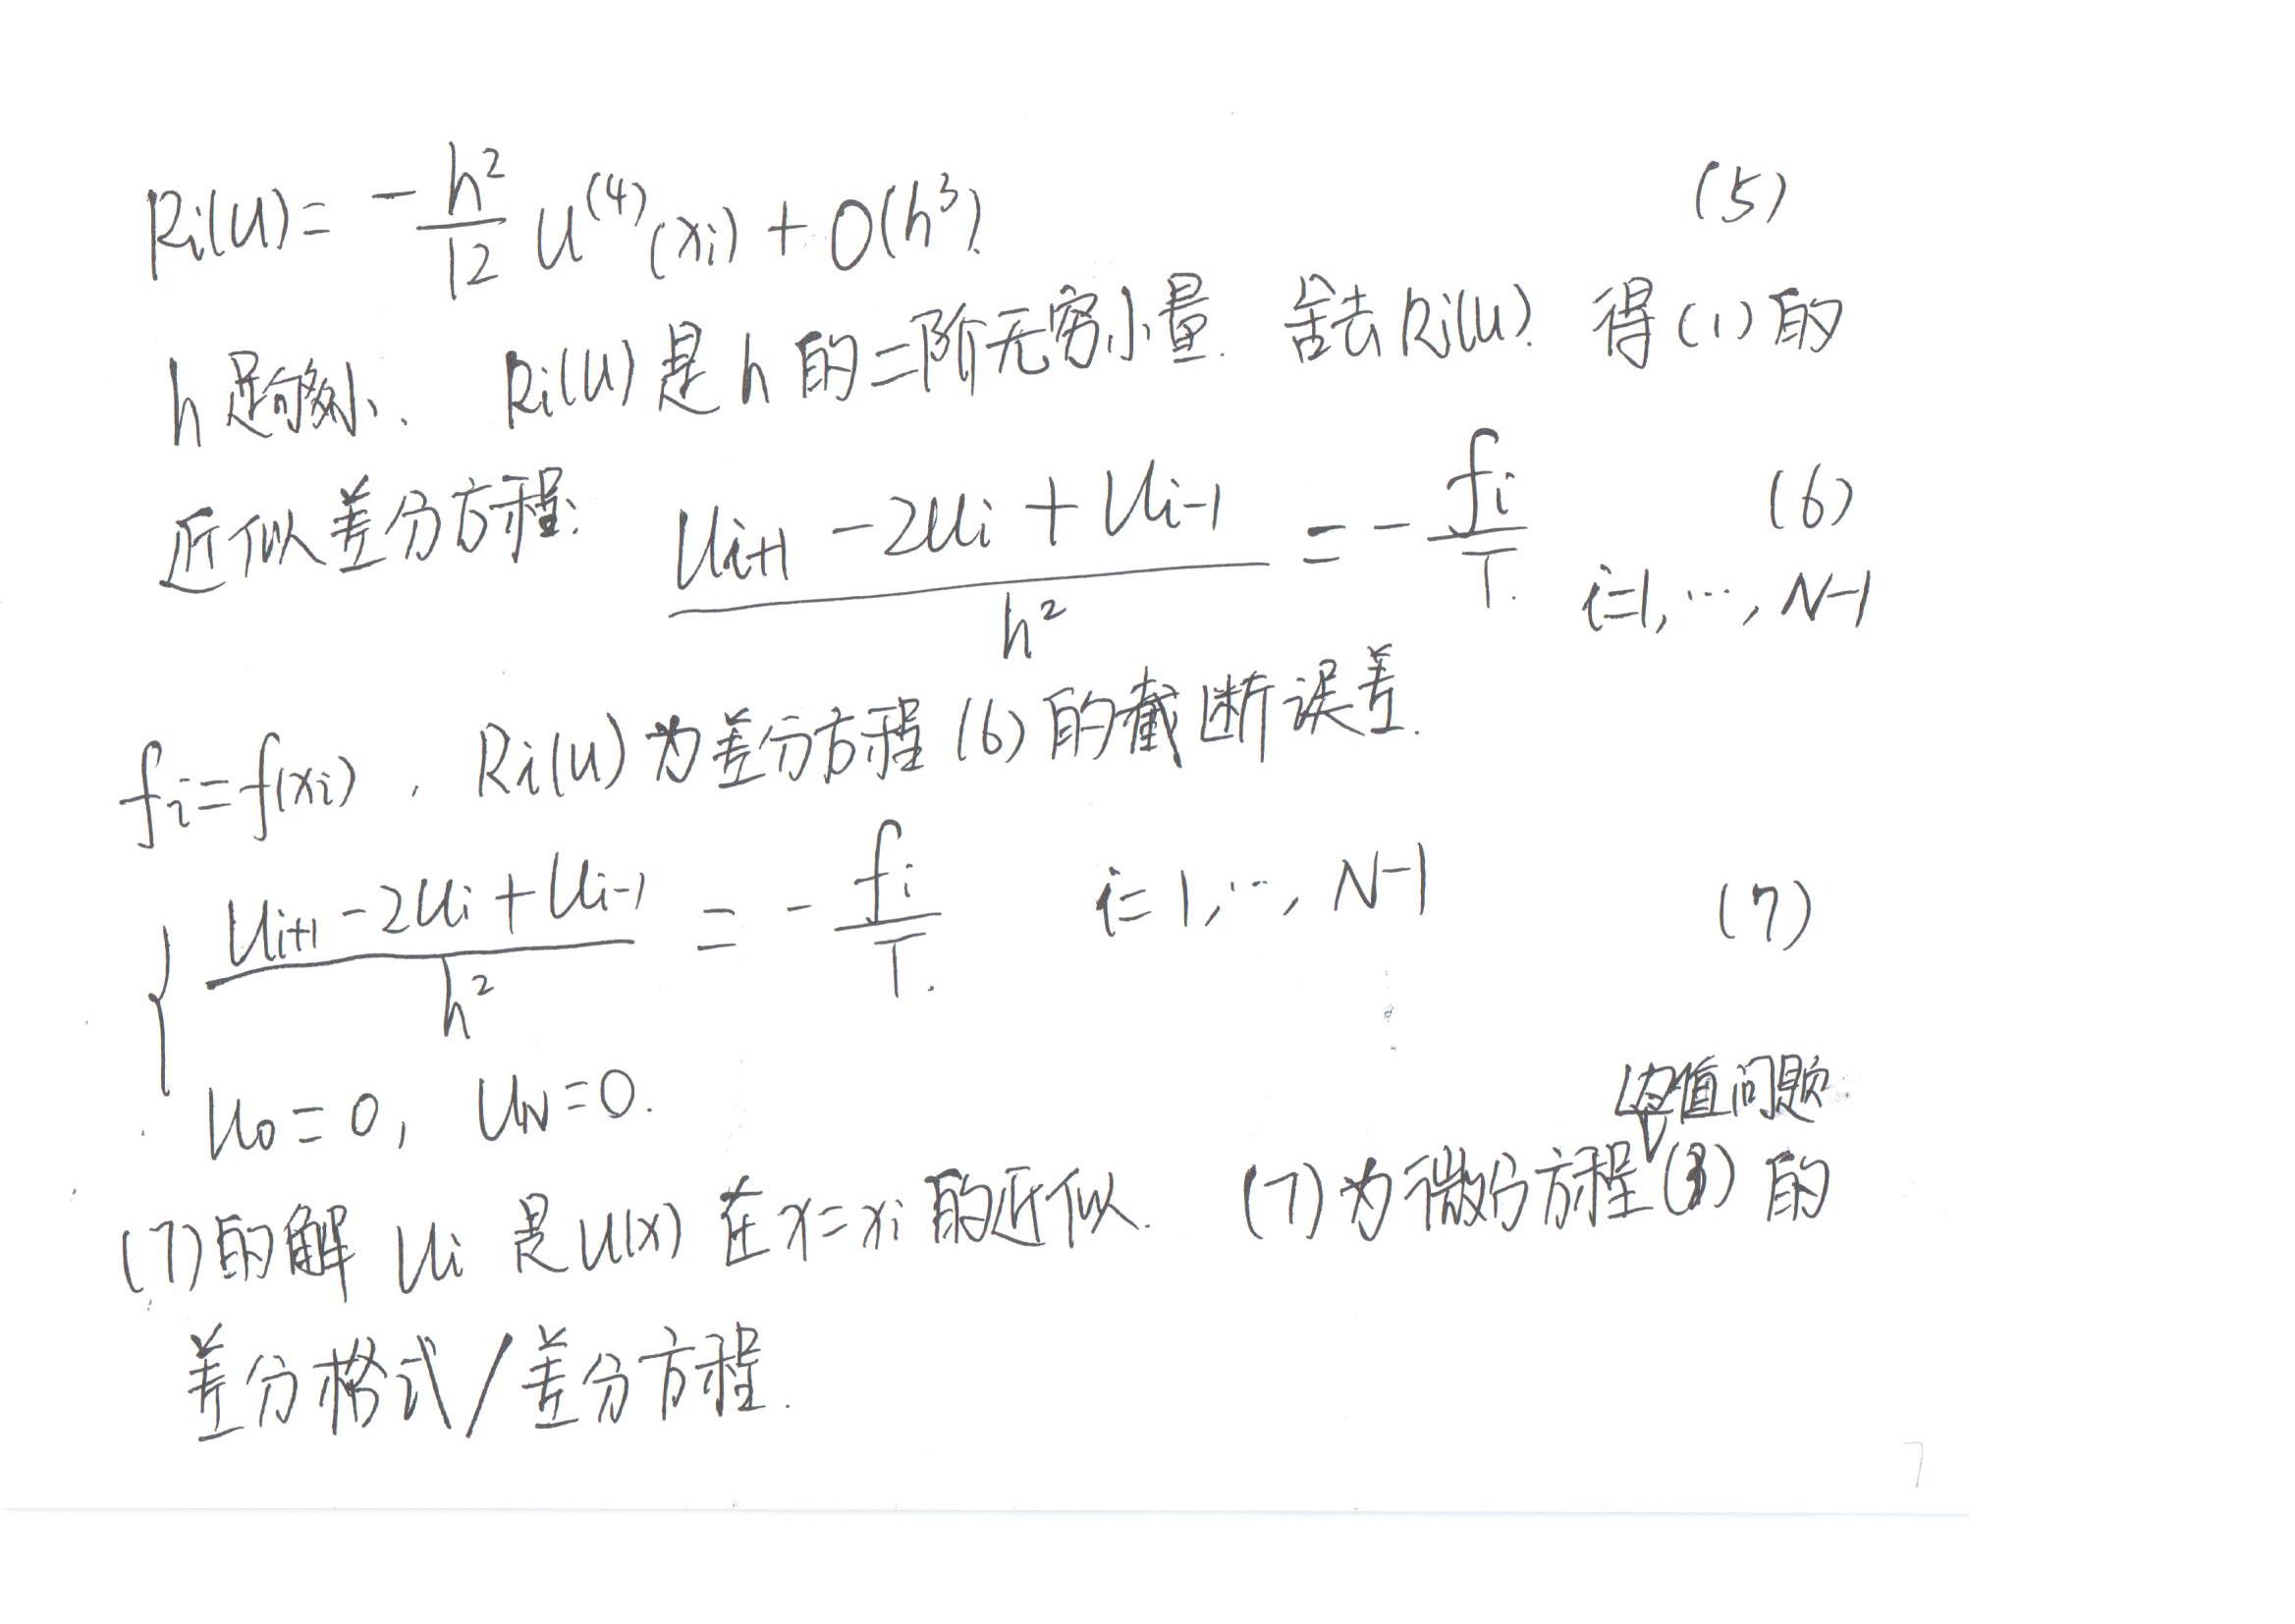 Ri(u) = -h²/12 u⁽⁴⁾(xi) + O(h³). (5)
h足够小. Ri(u)是h的二阶无穷小量. 舍去Ri(u). 得(1)的
近似差分方程: (ui+1 - 2ui + ui-1)/h² = - fi/T. (6)
i=1, …, N-1
fi=f(xi), Ri(u)为差分方程(6)的截断误差.
{ (ui+1 - 2ui + ui-1)/h² = - fi/T. i=1, …, N-1 (7)
u0=0, uN=0.
边值问题
(7)的解 ui 是u(x) 在x=xi的近似. (7)为微分方程(3)的
差分格式/差分方程.
7